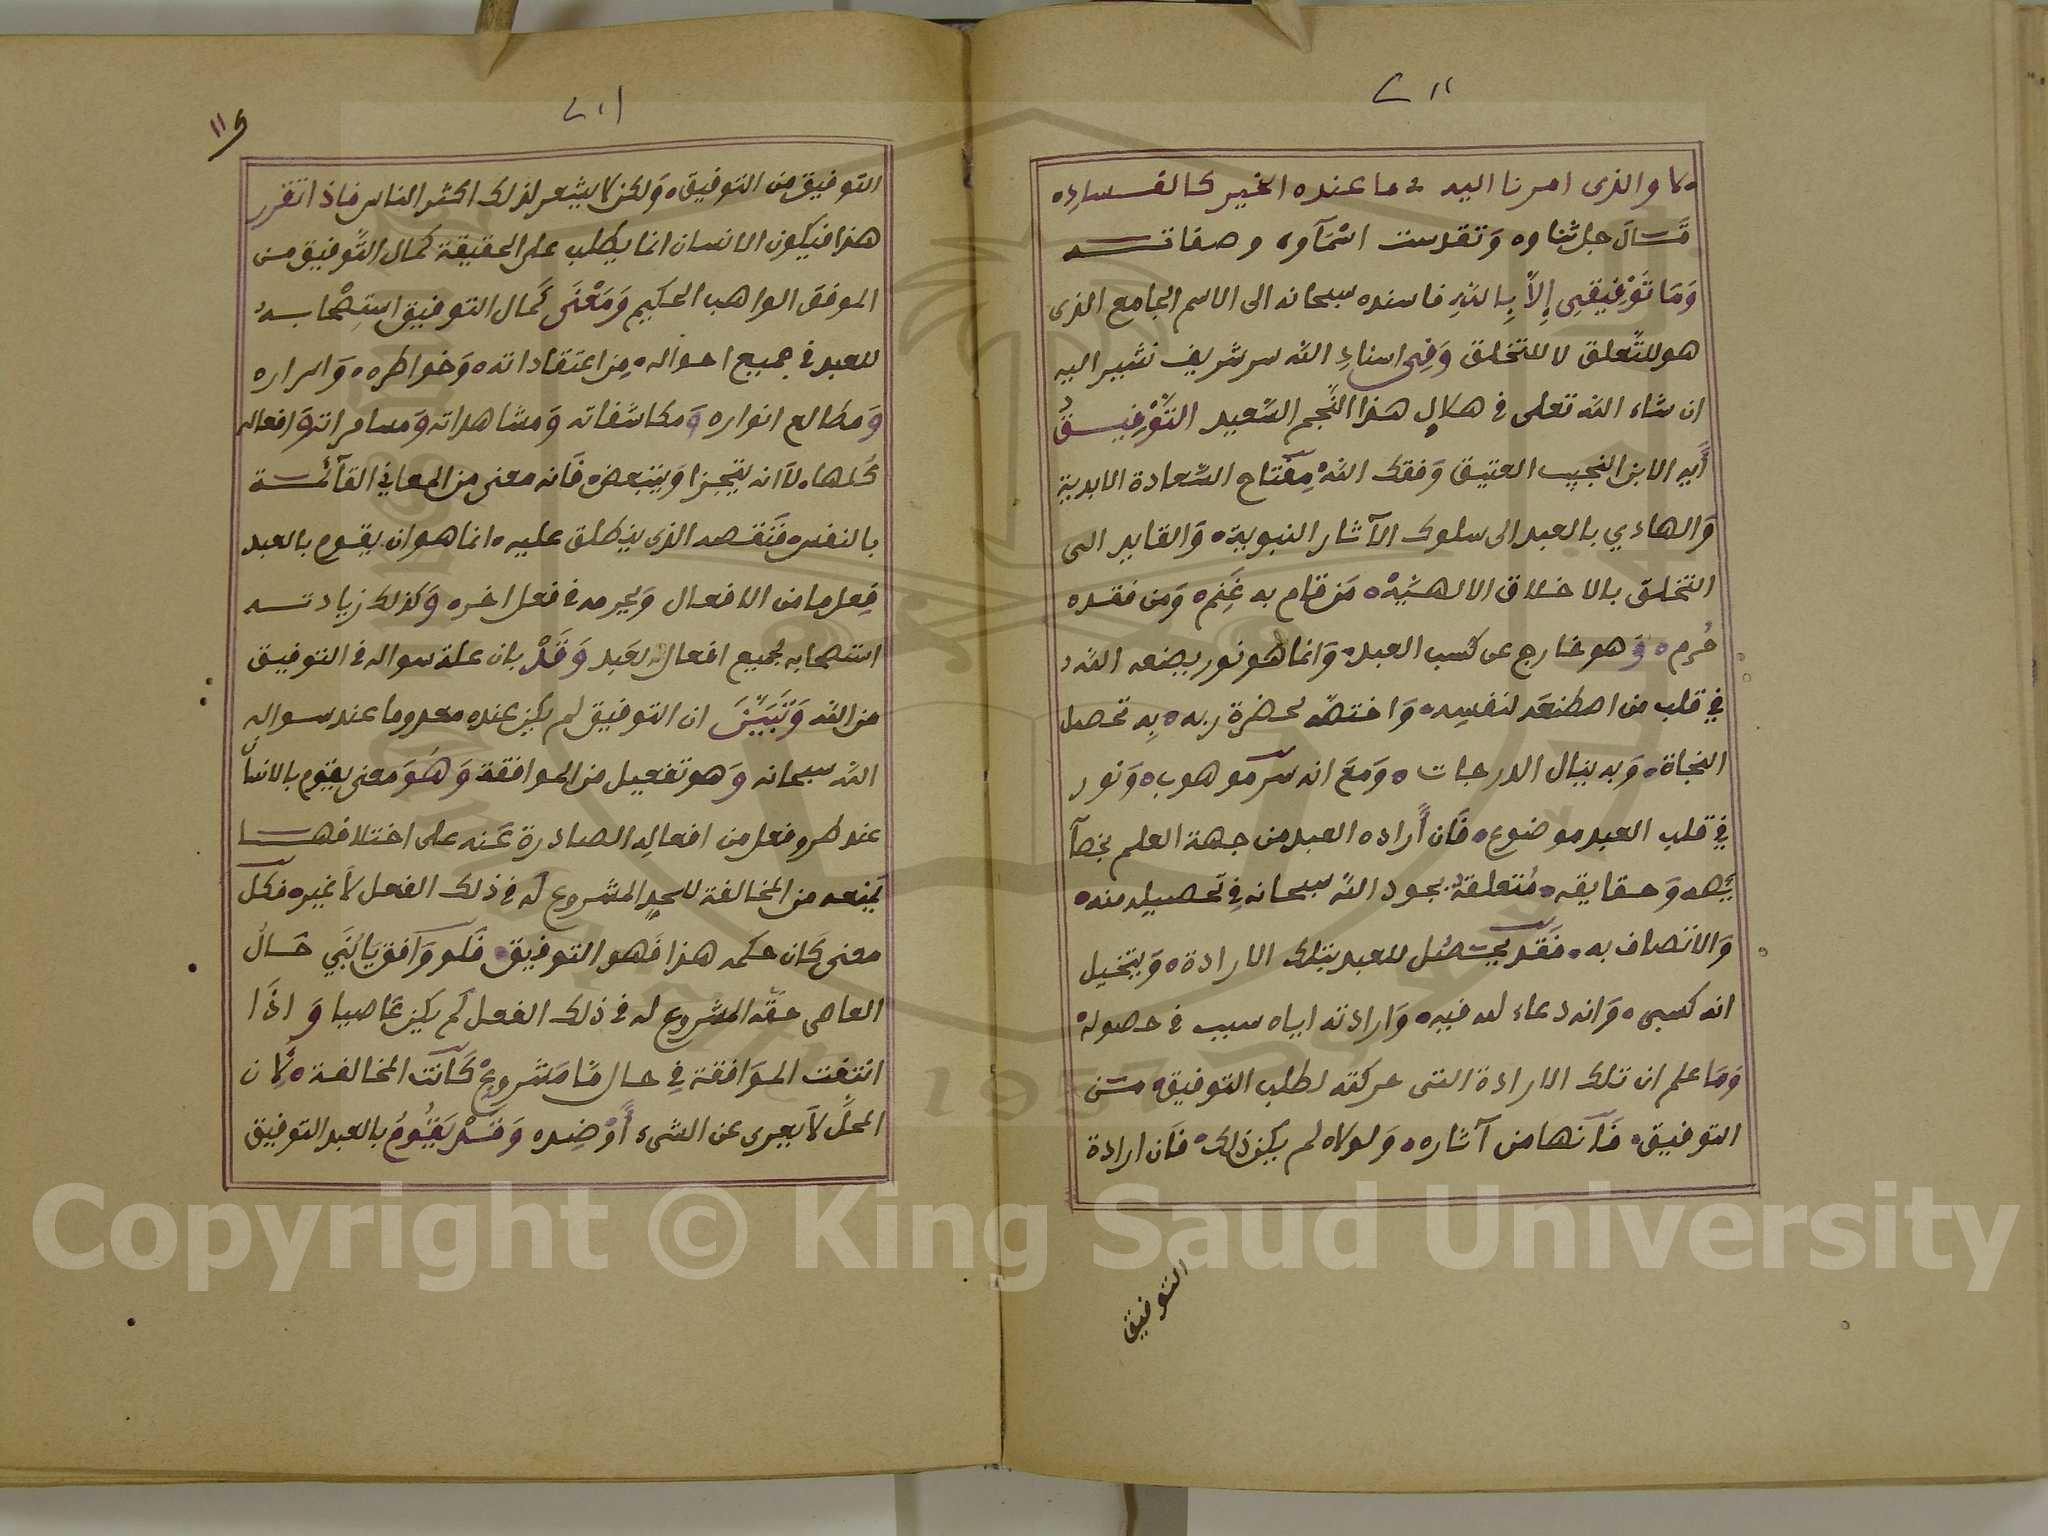 لا والذي امرنا اليه ما عنده الخير كالفساده
قال جل ثناوه وتقدست اسمآوه وصفاته
وَمَا تَوْفِيقِي إِلاَّ بِاللهِ فاسنده سبحانه الى الاسم الجامع الذي
هو للتَّعلق لا للتخلق وَفِي اسنادِ الله سر شريف نشير اليه
ان شاء الله تعلى في هلالِ هذا النَّجم السَّعيد التَّوْفِيقُ
أيه الابن النجيب العتيق وَفقك اللهُ مِفتاح السَّعادة الابديةِ
وَالهادي بالعبد الى سلوك الآثار النبوية، وَالقايد الى
التخلق بالاخلاق الالهيَّة، مَن قام به غَنِم، وَمن فقده
حُرم، وَهو خارج عن كسب العبد، وَانما هو نور يضعه الله
في قلب من اصطنعَه لنفسِه، وَاختصَّه لحضرة ربه، بِه تحصل
النجاة، وَبه ينال الدرجات، وَمعَ انه سرّ موهوب، وَنور
في قلب العبد موضوع، فَان أراده العبد من جهة العلم بخصآ
يصه وَحقايقه، مُتعلقةٌ بجود اللهِ سبحانه فِي تحصيله منه،
وَالاتصاف به، فَقد يحصُل للعبد بتلك الارادة، وَيتخيل
انه كسبي، وَانه دعاء لله فيه، وَارادته اياه سبب في حصوله،
وَمَا علم ان تلك الارادة التي حركته لطلب التوفيق، من
التوفيق، فَانها من آثاره، وَلولاه لم يكن ذلك، فَان ارادة
التوفيق
التوفيق من التوفيق، وَلكن لا يشعر لذلك اكثر الناس فاذا تقرر
هذا فيكون الانسان انما يطلب على الحقيقة كمال التَّوفيق من
الموفق الواهب الحكيم وَمَعْنَى كَمال التوفيق استِصْحابهُ
للعبد في جميع احواله، مِن اعتقاداته، وَخواطره، وَاسراره
وَمطالع انواره وَمكاشفاته وَمشاهداته وَمسامراته وَافعاله
كلها، لاَ انه يتجزا وَيتبعض، فَانه معنى من المعاني القآئمة
بالنفس، فَنقصه الذي ينطلق عليه، انما هو ان يقوم بالعبد
فِعل ما من الافعال وَيحرمه في فعل اخر، وَكذلك زيادته
استصحابه لجميع افعال العَبد وَقَدْ بان علة سواله في التوفيق
من الله وَتَبَيَّنَ ان التوفيق لم يكن عنده معدوما عند سواله
الله سبحانه وَهو تفعيل من الموافقة وَهُوَ معنى يقوم بالانسان
عند طرو فعل من افعاله الصادرة عَنه على اختلافها
يَمنعه من المخالفة للحدِ المشروع لَه في ذلك الفعل لاَ غيره فكل
معنى كَان حكمه هذا فَهو التوفيق، فَلو وَافق يَا بُنَي حَال
العاصى حَقَّه المشروع له في ذلك الفعل لَم يكن عَاصيا وَاذَا
انتفت الموَافقة فِي حال مَّا مَشروعٍ كَانت المخالفة، لِان
المحلَّ لاَ يعرى عن الشيء أوْ ضِده وَقَدْ يَقُومُ بالعبد التوفيق
Copyright © King Saud University